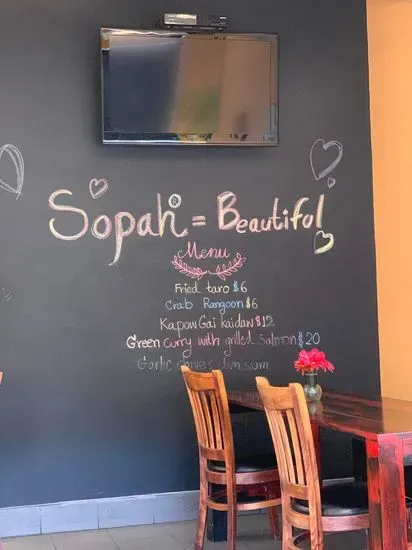 Sopah = Beautiful
Menu
Fried taro $6
Crab Rangoon $6
Kapow Gai kaidaw $12
Green curry with grilled Salmon $20
Garlic chives dim sum